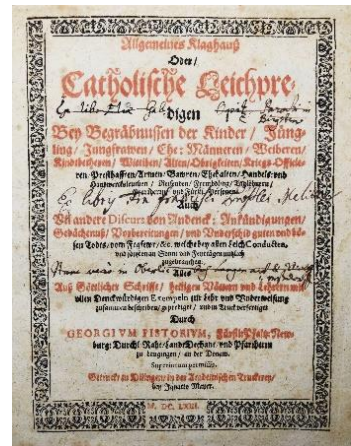 Allgemeines Klaghauß
Oder/
Catholische Leichpre-
digen
Bey Begräbnussen der Kinder/ Jüng-
ling/ Jungfrawen/ Ehe: Männeren/ Weiberen/
Kindbetheren/ Wittiben/ Alten/ Obrigkeiten/ Kriegs-Officie-
ren/ Presthafften/ Armen/ Bawren/ Ehehalten/ Handels: und
Handwercksleuthen/ Reisenden/ Frembden/
und Fürstl. Personen
Auch
Vil andere Discurs von Andenck: Ankündigungen/
Gedächtnuß/ Vorbereitungen/ und Underschid guten und bö-
sen Todes/ vom Fegfewr/ &c. welche bey allen Leich Conducten,
und sonsten an Sonn und Feyrtägen nutzlich
zugebrauchen.
Alles
Auß Göttlicher Schrifft/ heiligen Vättern und Lehrern mit
vilen Denckwürdigen Exempeln zur Lehr und Underweisung
zusammen beschriben/ geprediget/ und in Truck verfertiget
Durch
GEORGIUM PISTORIUM, Fürstl: Pfaltz: New-
burg: Durchl: Raht/ Land Dechant/ und Pfarrherrn
zu Laugingen/ an der Donaw.
Superiorum permissu.
Getruckt zu Dilingen/ in der Academischen Truckerey/
bey Ignatio Mayer.
M. DC. LXIII.